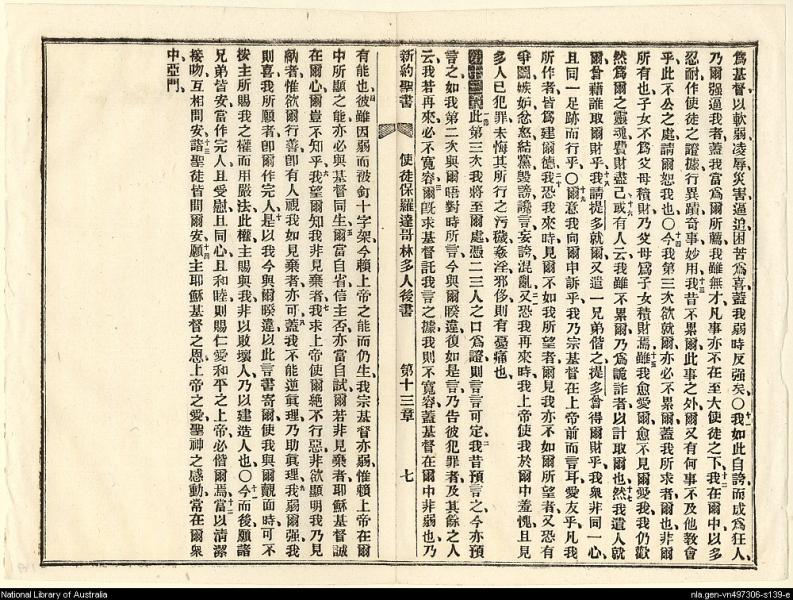 爲基督以軟弱凌辱災害逼迫困苦爲喜蓋我弱時反强矣〇十一我如此自誇而成爲狂人
乃爾强逼我者蓋我當爲爾所薦我雖無才凡事亦不在至大使徒之下十二我在爾中以多
忍耐作使徒之證據行異蹟奇事妙用十三我昔不累爾此事之外爾又有何事不及他教會
乎此不公之處請爾恕我也〇十四今我第三次欲就爾亦必不累爾蓋我所求者爾也非爾
所有也子女不爲父母積財乃父母爲子女積財焉十五雖我愈愛爾愈不見爾愛我我仍歡
然爲爾之靈魂費財盡己十六或有人云我雖不累爾乃爲詭詐者以計取爾也十七然我遣人就
爾曾藉誰取爾財乎十八我請提多就爾又遣一兄弟偕之提多曾得爾財乎我衆非同一心
且同一足跡而行乎〇十九爾意我向爾申訴乎我乃宗基督在上帝前而言耳愛友乎凡我
所作者皆爲建爾德二十我恐我來時見爾不如我所望者爾見我亦不如爾所望者又恐有
爭鬬嫉妒忿怒結黨毀謗讒言妄誇混亂二一又恐我再來時我上帝使我於爾中羞愧且見
多人已犯罪未悔其所行之污穢姦淫邪侈則有憂痛也
第十三章一此第三次我將至爾處憑二三人之口爲證則言言可定二我昔預言之今亦預
言之如我第二次與爾晤對時所言今與爾暌違復如是言乃告彼犯罪者及其餘之人
云我若再來必不寬容爾三旣求基督託我言之據我則不寬容蓋基督在爾中非弱也乃
新約聖書 使徒保羅達哥林多人後書 第十三章 七
有能也四彼雖因弱而被釘十字架今賴上帝之能而仍生我宗基督亦弱惟賴上帝在爾
中所顯之能亦必與基督同生五爾當自省信主否亦當自試爾若非見棄者耶穌基督誠
在爾心爾豈不知乎六我望爾知我非見棄者七我求上帝使爾絶不行惡非欲顯明我乃見
納者惟欲爾行善卽有人視我如見棄者亦可八蓋我不能逆眞理乃助眞理九我弱爾强我
則喜我所願者卽爾作完人十是以我今與爾暌違以此言書寄爾使我與爾覿面時可不
按主所賜我之權而用嚴法此權主賜與我非以敗壞人乃以建造人也〇十一今而後願諸
兄弟皆安當作完人且受慰且同心且和睦則賜仁愛和平之上帝必偕爾焉十二當以清潔
接吻互相問安十三諸聖徒皆問爾安十四願主耶穌基督之恩上帝之愛聖神之感動常在爾衆
中亞門
National Library of Australia
nla.gen-vn497306-s139-e